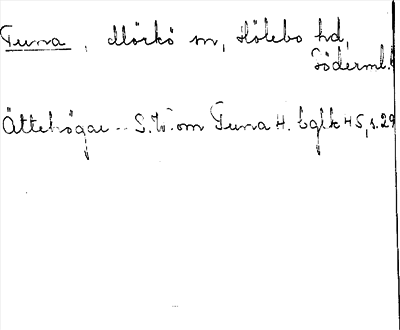 Tuna, Mörkö sn, Hölebo hd,
Söderml.
Ättehögar - S.V. om Tuna H. bglk 45, s. 29